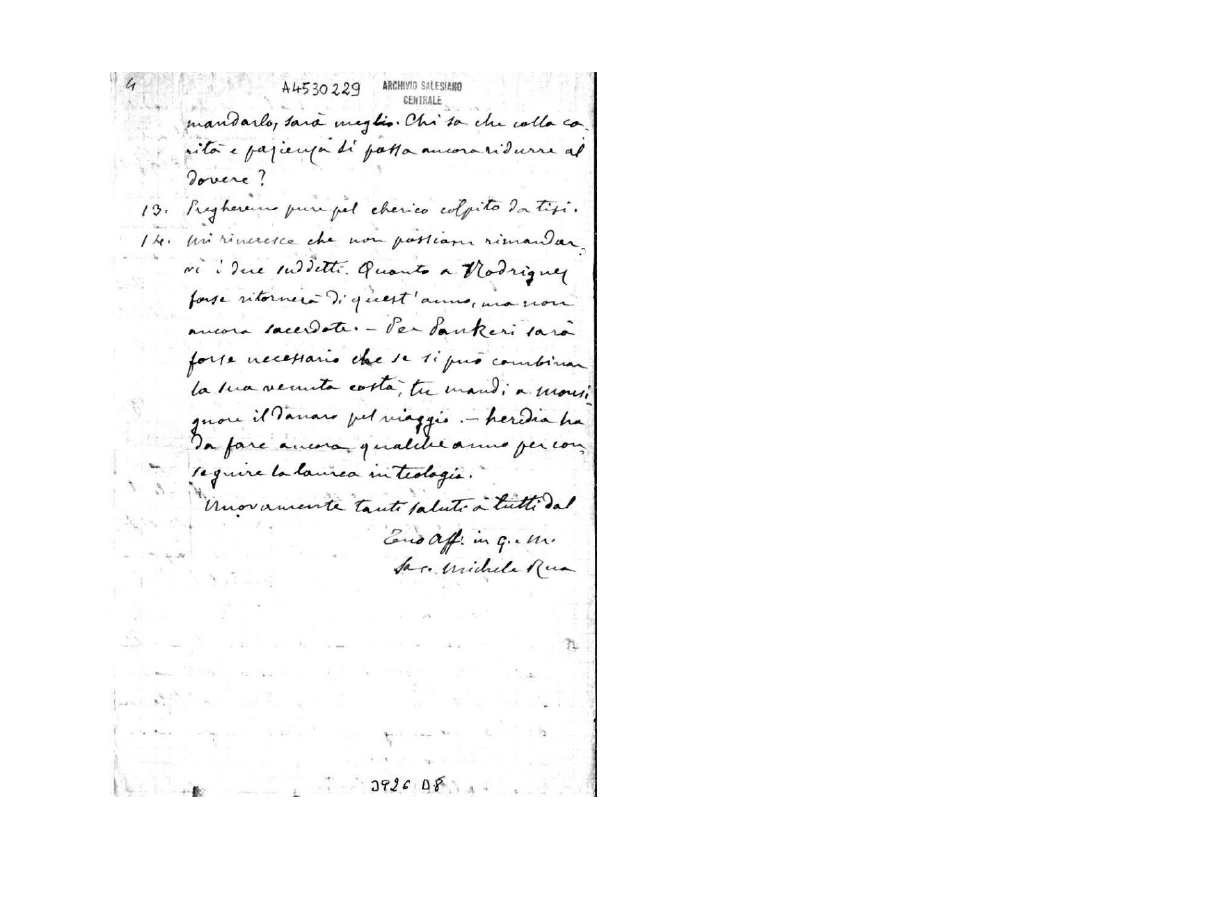 4
A4530229
ARCHIVIO SALESIANO
CENTRALE
mandarlo, sarà meglio. Chi sa che colla ca-
rità e pazienza si possa ancora ridurre al
dovere?
13. Pregheremo pure pel cherico colpito da tisi.
14. Mi rincresce che non possiam rimandar-
vi i due suddetti. Quanto a Rodriguez
forse ritornerà di quest'anno, ma non
ancora sacerdote. – Per Pankeri sarà
forse necessario che se si può combinar
la sua venuta costà, tu mandi a monsi-
gnore il danaro pel viaggio. – heredia ha
da fare ancora qualche anno per con-
seguire la laurea in teologia.
Nuovamente tanti saluti a tutti dal
Tuo Aff. in G. e M.
Sac. Michele Rua
3926 D8